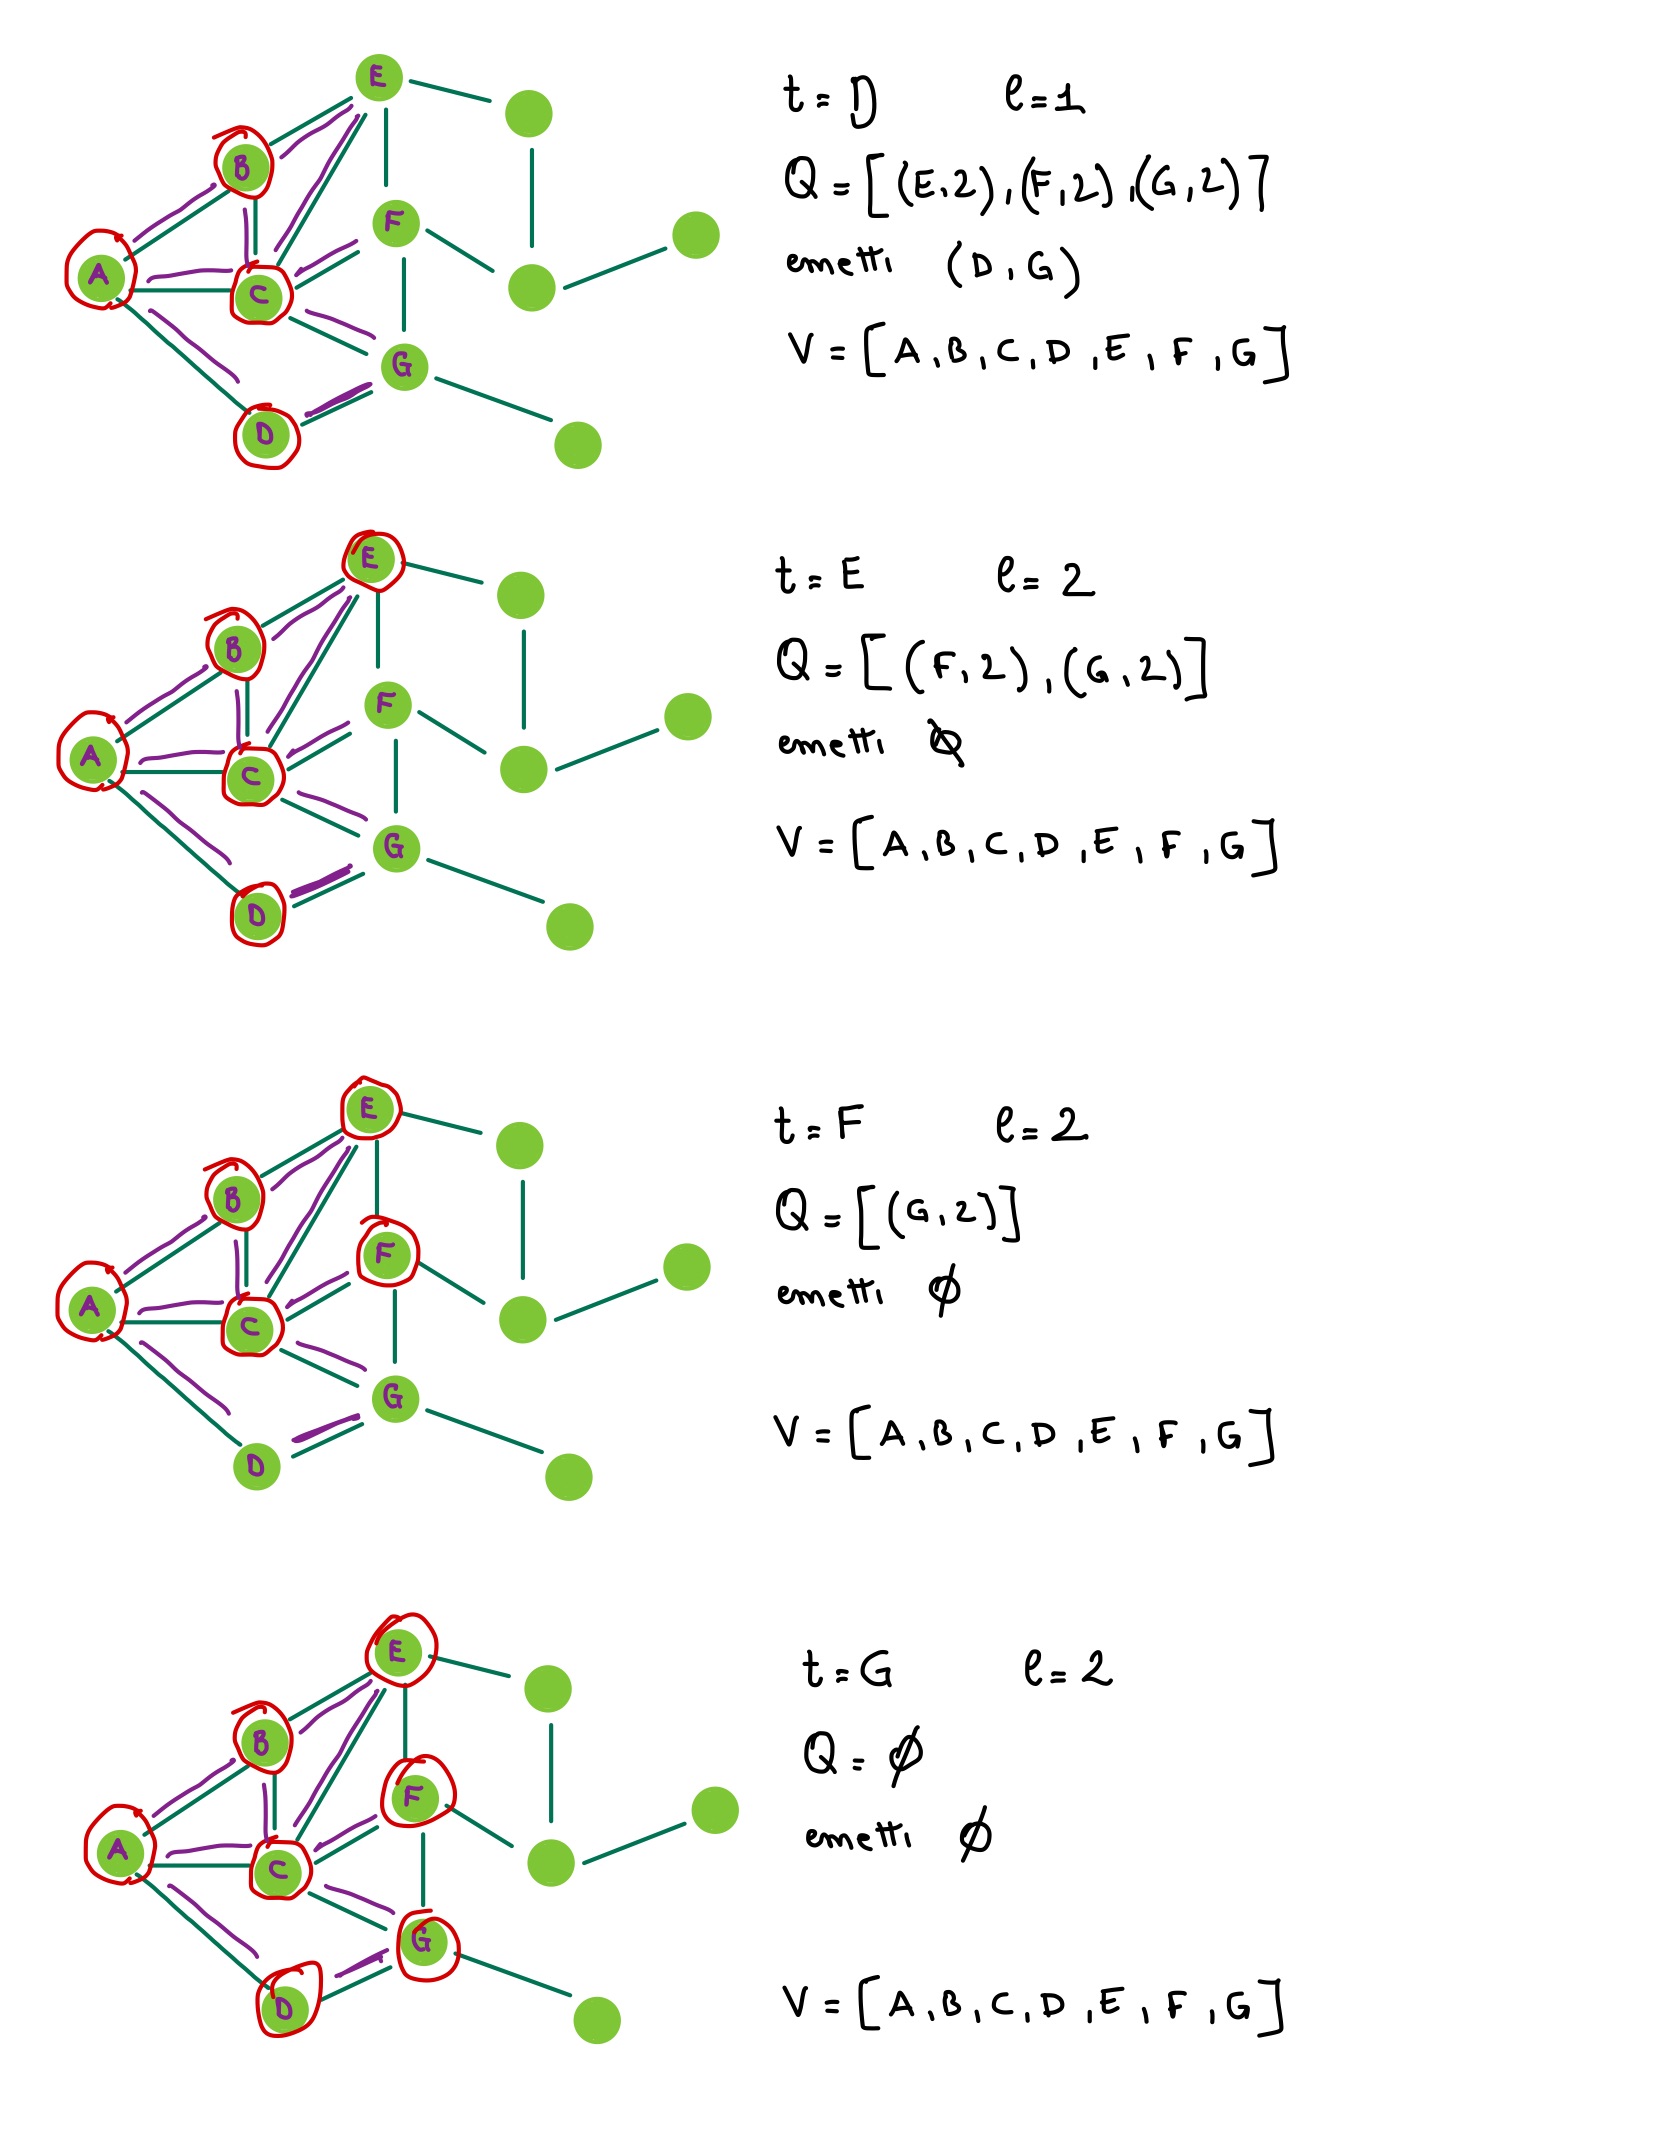 E
B
F
A
C
G
D
t = D    l = 1
Q = [(E,2),(F,2),(G,2)]
emetti (D,G)
V = [A,B,C,D,E,F,G]
E
B
F
A
C
G
D
t = E    l = 2
Q = [(F,2),(G,2)]
emetti ∅
V = [A,B,C,D,E,F,G]
E
B
F
A
C
G
D
t = F    l = 2
Q = [(G,2)]
emetti ∅
V = [A,B,C,D,E,F,G]
E
B
F
A
C
G
D
t = G    l = 2
Q = ∅
emetti ∅
V = [A,B,C,D,E,F,G]